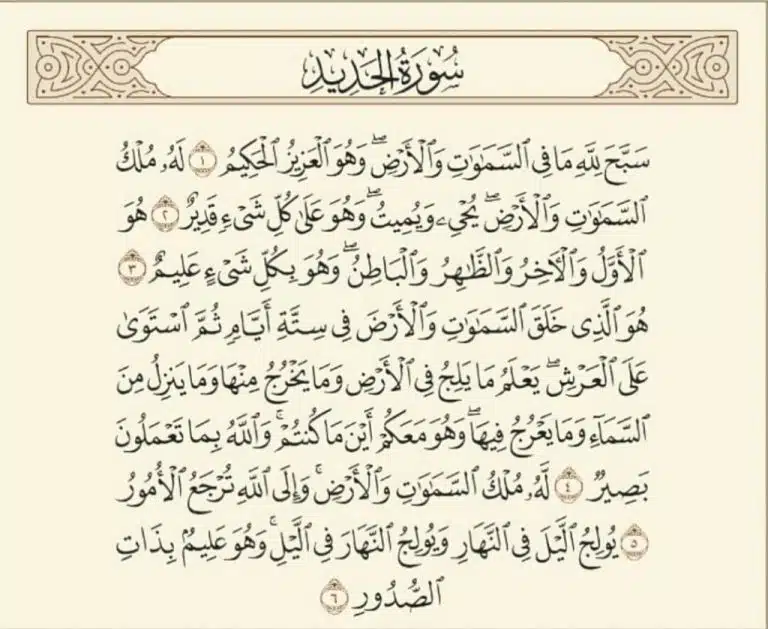 سُورَةُ الحَدِيدِ
سَبَّحَ لِلَّهِ مَا فِي ٱلسَّمَٰوَٰتِ وَٱلۡأَرۡضِۖ وَهُوَ ٱلۡعَزِيزُ ٱلۡحَكِيمُ ١ لَهُۥ مُلۡكُ
ٱلسَّمَٰوَٰتِ وَٱلۡأَرۡضِۖ يُحۡيِۦ وَيُمِيتُۖ وَهُوَ عَلَىٰ كُلِّ شَيۡءٖ قَدِيرٌ ٢ هُوَ
ٱلۡأَوَّلُ وَٱلۡأٓخِرُ وَٱلظَّٰهِرُ وَٱلۡبَاطِنُۖ وَهُوَ بِكُلِّ شَيۡءٍ عَلِيمٌ ٣
هُوَ ٱلَّذِي خَلَقَ ٱلسَّمَٰوَٰتِ وَٱلۡأَرۡضَ فِي سِتَّةِ أَيَّامٖ ثُمَّ ٱسۡتَوَىٰ
عَلَى ٱلۡعَرۡشِۖ يَعۡلَمُ مَا يَلِجُ فِي ٱلۡأَرۡضِ وَمَا يَخۡرُجُ مِنۡهَا وَمَا يَنزِلُ مِنَ
ٱلسَّمَآءِ وَمَا يَعۡرُجُ فِيهَاۖ وَهُوَ مَعَكُمۡ أَيۡنَ مَا كُنتُمۡۚ وَٱللَّهُ بِمَا تَعۡمَلُونَ
بَصِيرٞ ٤ لَّهُۥ مُلۡكُ ٱلسَّمَٰوَٰتِ وَٱلۡأَرۡضِۚ وَإِلَى ٱللَّهِ تُرۡجَعُ ٱلۡأُمُورُ
٥ يُولِجُ ٱلَّيۡلَ فِي ٱلنَّهَارِ وَيُولِجُ ٱلنَّهَارَ فِي ٱلَّيۡلِۚ وَهُوَ عَلِيمُۢ بِذَاتِ
ٱلصُّدُورِ ٦